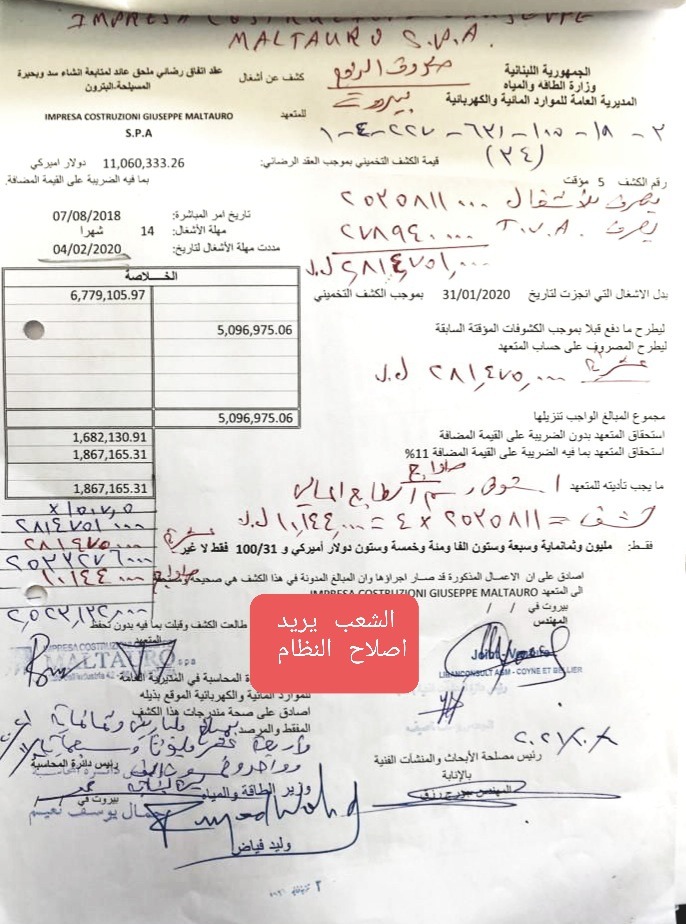 IMPRESA COSTRUZIONI GIUSEPPE
MALTAURO S.P.A.
الجمهورية اللبنانية
وزارة الطاقة والمياه
المديرية العامة للموارد المائية والكهربائية
بيروت
كشف عن أشغال
عقد اتفاق رضائي ملحق عائد لمتابعة انشاء سد وبحيرة
المسيلحة-البترون
للمتعهد
IMPRESA COSTRUZIONI GIUSEPPE MALTAURO
S.P.A
(٣٤)
قيمة الكشف التخميني بموجب العقد الرضائي: 11,060,333.26 دولار اميركي
بما فيه الضريبة على القيمة المضافة.
رقم الكشف 5 مؤقت
يصرف للأشغال ٢٥٣٥٨١١,٠٠٠
يصرف T.V.A. ٢٧٨٩٤٠,٠٠٠
٢,٨١٤,٧٥١,٠٠٠ ل.ل
تاريخ امر المباشرة: 07/08/2018
مهلة الأشغال: 14 شهرا
مددت مهلة الأشغال لتاريخ: 04/02/2020
الخــــلاصة
بدل الاشغال التي انجزت لتاريخ 31/01/2020 بموجب الكشف التخميني 6,779,105.97
ليطرح ما دفع قبلا بموجب الكشوفات المؤقتة السابقة 5,096,975.06
ليطرح المصروف على حساب المتعهد
٢٨١,٤٧٥,٠٠٠ ل.ل
مجموع المبالغ الواجب تنزيلها 5,096,975.06
استحقاق المتعهد بدون الضريبة على القيمة المضافة 1,682,130.91
استحقاق المتعهد بما فيه الضريبة على القيمة المضافة 11% 1,867,165.31
ما يجب تأديته للمتعهد 1,867,165.31
x ١٥٠٧,٥
٢٨١٤٧٥١,٠٠٠
٢٨١٤٧٥,٠٠٠
٢٥٣٣٢٧٦,٠٠٠
١٠١٤٤,٠٠٠
٢,٥٢٣,١٣٢,٠٠٠
٢٥٣٥٨١١ x ٤ = ١٠,١٤٤,٠٠٠ ل.ل
فقط: مليون وثمانماية وسبعة وستون الفا ومئة وخمسة وستون دولار أميركي و 100/31 فقط لا غير
اصادق على ان الاعمال المذكورة قد صار اجراؤها وان المبالغ المدونة في هذا الكشف هي صحيحة
الى المتعهد IMPRESA COSTRUZIONI GIUSEPPE MALTAURO
بيروت في / /
المهندس
طالعت الكشف وقبلت بما فيه بدون تحفظ
المتعهد
IMPRESA COSTRUZIONI
MALTAURO spa
LIBANCONSULT ABM - COYNE ET BELLIER
الشعب يريد
اصلاح النظام
دائرة المحاسبة في المديرية العامة
للموارد المائية والكهربائية الموقع بذيله
اصادق على صحة مندرجات هذا الكشف
رئيس دائرة المحاسبة
رئيس مصلحة الأبحاث والمنشآت الفنية
بالإنابة
المهندس جورج رزق
وزير الطاقة والمياه
بيروت في / /
جمال يوسف نعيم
وليد فياض